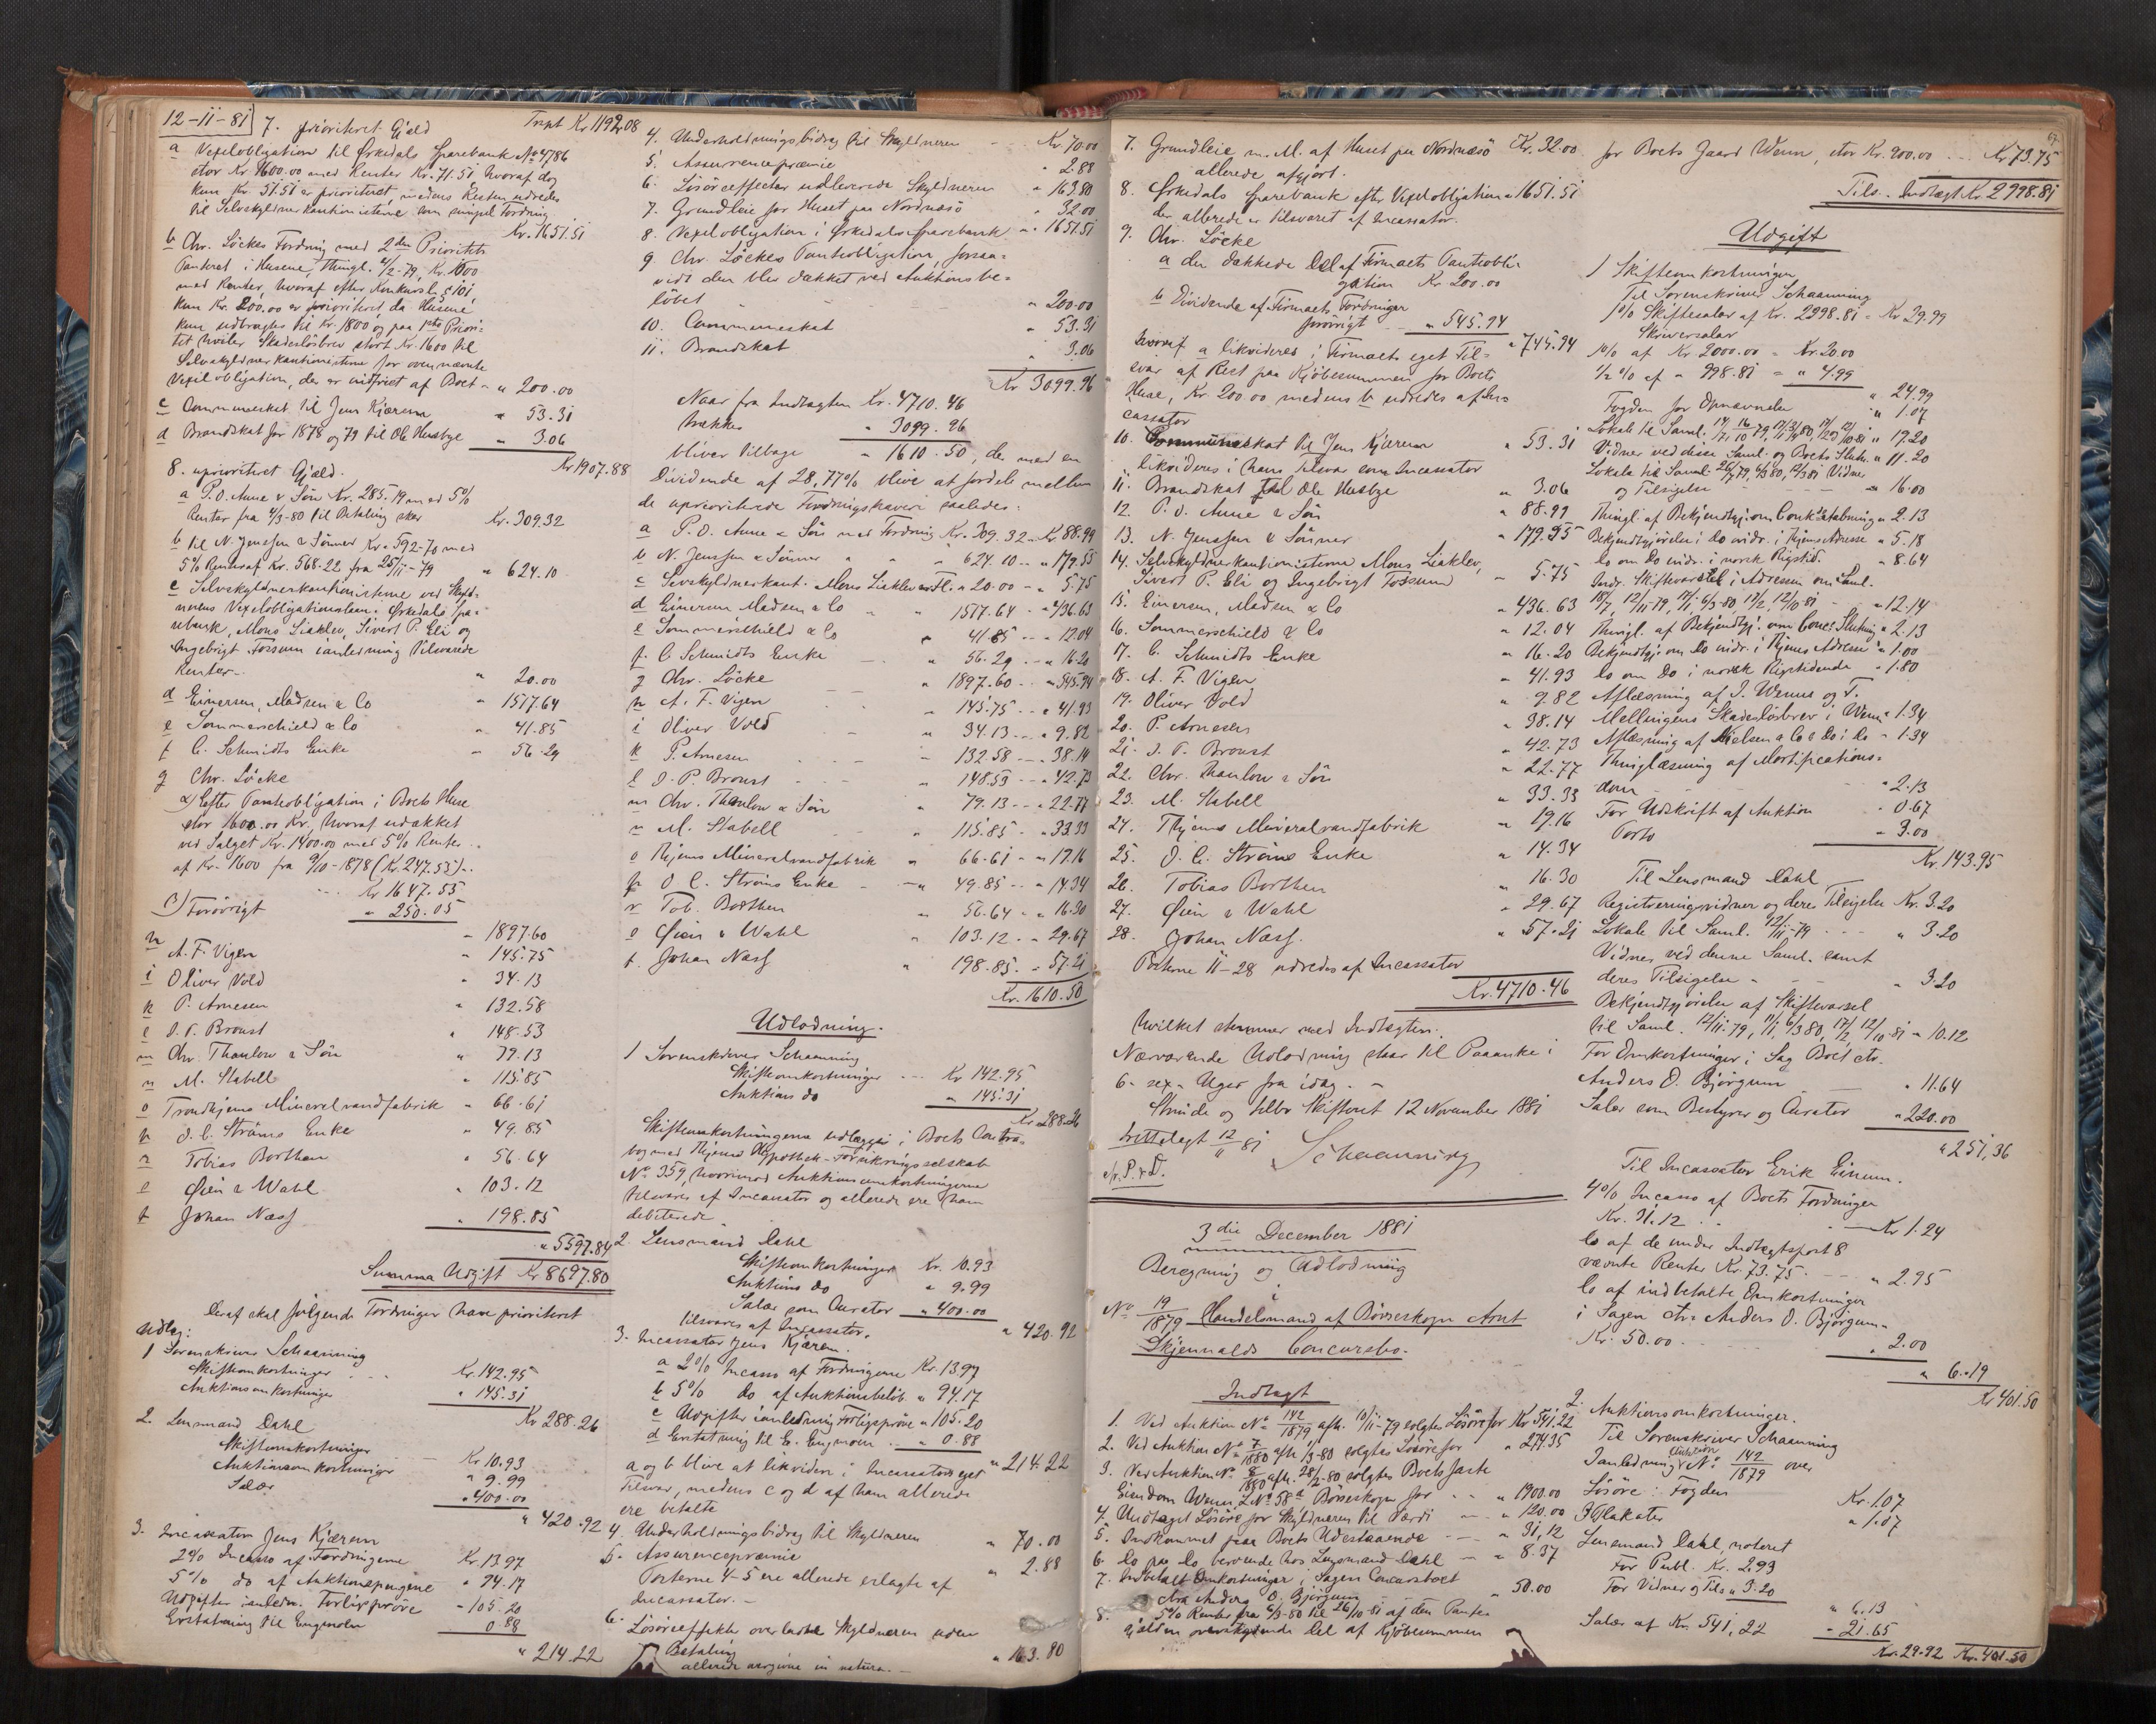 12-11-81
7. prioriteret Gjæld
Trspt Kr 1192.08
a Vexelobligation til Ørkedals Sparebank No 4786
stor Kr. 1600.00 med Renter Kr. 71.51 hvoraf dog
kun Kr. 51.51 er prioriteret, medens Resten udredes
til Selvskyldnerkautionisterne som simpel Fordring
Kr. 1651.51
b Chr. Löckes Fordring med 2den Prioritets
Panteret i Husene, Thingl. 4/2-79, Kr. 1600
med Renter, hvoraf efter Konkursl. § 101,
kun Kr. 200.00 er prioriteret, da Husene
kun udbragtes til Kr. 1800 og paa 1ste Priori-
tet hviler Skadeslösbrev stort Kr. 1600 til
Selvskyldnerkautionisterne for ovennævnte
Vexelobligation, der er indfriet af Boet - " 200.00
c Communeskat til Jens Kjærem " 53.31
d Brandskat for 1878 og 79 til Ole Husbye " 3.06
Kr 1907.88
8. uprioritet Gjæld.
a P. O. Aune & Sön Kr. 285.19 med 5%
Renter fra 4/3-80 til Betaling sker Kr. 309.32
b til N. Jenssen & Sönner Kr. 592-70 med
5% Renter af Kr. 568.22 fra 25/11-79 " 624.10
c Selvskyldnerkautionisterne ved Skyld-
nerens Vexelobligationslaan i Ørkedals Spa-
rebank, Mons Liaklev, Sivert P. Eli og
Ingebrigt Fossum i anledning tilsvarede
Renter " 20.00
d Einersen, Madsen & Co " 1517.64
e Sommerschield & Co " 41.85
f C. Schmidts Enke " 56.29
g Chr. Löcke
α) Efter Panteobligation i Boets Huse
stor 1600.00 Kr., hvoraf udækket
ved Salget Kr. 1400.00 med 5% Renter
af Kr. 1600 fra 9/10-1878 (Kr. 247.55)
Kr 1647.55
β) Forövrigt " 250.05
" 1897.60
h A. F. Vigen " 145.75
i Oliver Vold " 34.13
k P. Arnesen " 132.58
l J. P. Broust " 148.53
m Chr. Thaulow & Sön " 79.13
n M. Stabell " 115.85
o Trondhjems Mineralvandfabrik " 66.61
p O. C. Ströms Enke " 49.85
r Tobias Borthen " 56.64
s Øien & Wahl " 103.12
t Johan Næss " 198.85
" 5597.84
Summa Udgift Kr 8697.80
Deraf skal følgende Fordringer have prioriteret
Udlæg:
1 Sorenskriver Schaanning
Skifteomkostninger Kr. 142.95
Auktionsomkostninger " 145.31
Kr 288.26
2. Lensmand Dahl
Skifteomkostninger Kr 10.93
Auktionsomkostninger " 9.99
Salær " 400.00
" 420.92
3. Incassator Jens Kjærem
2% Incasso af Fordringerne Kr. 13.97
5% do af Auktionspengene " 94.17
Udgifter i anledn. Forligsprøve - 105.20
Erstatning til Engmoen 0.88
" 214.22
4. Underholdningsbidrag til Skyldneren Kr 70.00
5. Assurancepræmie " 2.88
6. Lösöreeffecter udleverede Skyldneren " 163.80
7. Grundleie for Huset paa Nordnæsö " 32.00
8. Vexelobligation i Ørkedals Sparebank " 1651.51
9 Chr. Löckes Panteobligation, forsaa-
vidt den blev dækket ved Auktionsbe-
löbet " 200.00
10. Communeskat " 53.31
11. Brandskat " 3.06
Kr 3099.96
Naar fra Indtægten Kr. 4710.46
trækkes " 3099.96
bliver tilbage " 1610.50, der med en
Dividende af 28,77% blive at fordele mellem
de uprioriterede Fordringshavere saaledes:
a P. O. Aune & Sön med Fordring Kr. 309.32 - Kr 88.99
b N. Jenssen & Sönner " " 624.10 - " 179.55
c Selvskyldnerkaut. Mons Liaklev m.Fl. " 20.00 - " 5.75
d Einersen Madsen & Co " 1517.64 - " 436.63
e Sommerschield & Co " 41.85 - " 12.04
f. C. Schmidts Enke " 56.29 - " 16.20
g Chr. Löcke " 1897.60 - " 545.94
h A. F. Vigen " 145.75 - " 41.93
i Oliver Vold " 34.13 - " 9.82
k P. Arnesen - 132.58 - " 38.14
l J. P. Broust " 148.53 - " 42.73
m Chr. Thaulow & Sön " 79.13 - " 22.77
n M. Stabell " 115.85 - " 33.33
o Thjems Mineralvandfabrik " 66.61 - " 19.16
p O. C. Ströms Enke " 49.85 - " 14.34
r Tob. Borthen " 56.64 - " 16.30
s Øien & Wahl " 103.12 - " 29.67
t. Johan Næss " 198.85 - " 57.21
Kr. 1610.50
Udlodning.
1 Sorenskriver Schaanning
Skifteomkostninger Kr 142.95
Auktions do " 145.31
Kr 288.26
Skifteomkostningerne udlægges i Boets Contra-
bog med Thjems Hypothek-Forsikringsselskab
No 359, hvorimod Auktionsomkostningerne
tilsvares af Incassator og allerede ere ham
debiterede
2. Lensmand Dahl
Skifteomkostninger Kr. 10.93
Auktions do " 9.99
Salær som Curator " 400.00
tilsvares af Incassator. " 420.92
3. Incassator Jens Kjærem.
a 2% Incasso af Fordringerne Kr. 13.97
b 5% do af Auktionsbelöb. " 94.17
c Udgifter i anledning Forligsprøve " 105.20
d Erstatning til E. Engmoen " 0.88
" 214.22
a og b blive at likvidere i Incassators eget
Tilsvar, medens c og d af ham allerede
ere betalte
4. Underholdningsbidrag til Skyldneren " 70.00
5. Assurancepræmie " 2.88
Posterne 4-5 ere allerede erlagte af
Incassator. -
6. Lösöreeffekter overladte Skyldneren uden
Betaling " 163.80
allerede avgivne in natura. -
67.
7. Grundleie m. M. af Huset paa Nordnæsö Kr. 32.00
allerede afgjort.
8. Ørkedals Sparebank efter Vexelobligation " 1651.51
der allerede er tilsvaret af Incassator.
9. Chr. Löcke
a den dækkede Del af Firmaets Panteobli-
gation Kr. 200.00
b Dividende af Firmaets Fordringer
forövrigt " 545.94
" 745.94
hvoraf a likvideres i Firmaets eget Til-
svar af Rest paa Kjöbesummen for Boets
Huse, Kr. 200.00 medens b udredes af In-
cassator
10. Communeskat til Jens Kjærem " 53.31
likvideres i hans Tilsvar som Incassator
11. Brandskat til Ole Husbye " 3.06
12. P. O. Aune & Sön " 88.99
13. N. Jenssen & Sönner " 179.55
14. Selvskyldnerkautionisterne Mons Liaklev,
Sivert P. Eli og Ingebrigt Fossum - 5.75
15. Einersen, Madsen & Co " 436.63
16. Sommerschield & Co " 12.04
17. C. Schmidts Enke " 16.20
18. A. F. Vigen " 41.93
19. Oliver Vold " 9.82
20. P. Arnesen " 38.14
21. J. P. Broust " 42.73
22. Chr. Thaulow & Sön " 22.77
23. M. Stabell " 33.33
24. Thjems Mineralvandfabrik " 19.16
25. O. C. Ströms Enke " 14.34
26. Tobias Borthen " 16.30
27. Øien & Wahl " 29.67
28. Johan Næss. " 57.21
Posterne 11-28 udredes af Incassator
Kr. 4710.46
hvilket stemmer med Indtægten.
Nærværende Udlodning staar til Paaanke i
6 - sex - Uger fra idag. -
Strinde og Selbo Skifteret 12 November 1881
Rettelagt 12/11 81
Schaanning
3die December 1881
Beregning og Udlodning
i
No 19/1879 Handelsmand af Börseskogn Arnt
Skjenalds Concursbo.
Indtægt
1. Ved Auktion No 142/1879 afh. 10/11-79 solgtes Lösöre for Kr 541.22
2. Ved Auktion No 7/1880 afh. 1/3-80 solgtes Lösöre for " 274.35
3. Ved Auktion No. 8/1880 afh. 28/2-80 solgtes Boets faste
Eiendom Wenn, L No 58a Börseskogn for " 1900.00
4. Undtaget Lösöre for Skyldneren til Værdi " 120.00
5. Indkommet paa Boets Udestaaende " 31,12
6. Do paa Do beroende hos Lensmand Dahl " 8.37
7. Indbetalt Omkostninger i Sagen Concursboet
ctra Anders O. Bjørgum " 50.00
8. 5% Renter fra 6/3-80 til 26/10-81 af den Pante-
gjælden overskydende Del af Kjöbesummen
for Boets Gaard Wenn, stor Kr. 900.00 - Kr 73.75
Tils. Indtægt Kr 2998.81
Udgift
1 Skifteomkostninger
Til Sorenskriver Schaanning
1% Skiftesalær af Kr. 2998.81 = Kr 29.99
Skriversalær
1% af Kr 2000.00 = Kr. 20.00
1/2% af " 998.81 = " 4.99
" 24.99
Fogden for Opnævnelse " 1.07
Lokale til Saml. " 19.20
Vidner ved disse Saml. og Boets Slutn. " 11.20
Lokale til Saml. 26/7 79, 4/3 80, 12/3 81 Vidner
og Tilsigelse " 16.00
Thingl. af Bekjendtgj. om Conk. aabning " 2.13
Bekjendtgjörelse i Do indr. i Thjems Adresse " 5.18
Do om Do indr. i norsk Rigstid. " 8.64
Indr. Skiftevarsel i Adressen om Saml.
" 12.14
Thingl. af Bekjendtgj. om Conc. Slutning " 2.13
Bekjendtgj. om Do indr. i Thjems Adresse " 1.00
Do om Do i norsk Rigstidende " 1.80
Aflæsning af J. Wenns og T.
Mellingens Skadeslösbrev i Wenn " 1.34
Aflæsning af Nielsen & Co s Do i Do " 1.34
Thinglæsning af Mortifications-
dom " 2.13
For Udskrift af Auktion " 0.67
Porto " 3.00
Kr. 143.95
Til Lensmand Dahl
Registreringsvidner og deres Tilsigelse Kr. 3.20
Lokale til Saml. 12/11-79 " 3.20
Vidner ved denne Saml. samt
deres Tilsigelse " 3.20
Bekjendtgjörelse af Skiftevarsel
til Saml. 12/11-79, 11/1, 6/3 80, 17/2, 12/10-81 " 10.12
For Omkostninger i Sag Boet ctr.
Anders O. Bjørgum " 11.64
Salær som Bestyrer og Curator " 220.00
" 251,36
Til Incassator Erik Einum.
4% Incasso af Boets Fordringer
Kr. 31.12 Kr 1.24
Do af de under Indtægtspost 8
nævnte Renter Kr. 73.75 " 2.95
Do af indbetalte Omkostninger
i Sagen ctr. Anders O. Bjørgum
Kr. 50.00 " 2.00
" 6.19
Kr 401.50
2. Auktionsomkostninger.
Til Sorenskriver Schaanning
Ianledning Auktion No 142/1879 over
Lösöre: Fogden Kr. 1.07
3 Plakater " 1.07
Lensmand Dahl, noteret
For Publ. Kr. 2.93
For Vidner og Tils. " 3.20
" 6.13
Salær af Kr. 541,22 - 21.65
Kr. 29.92 Kr. 401.50